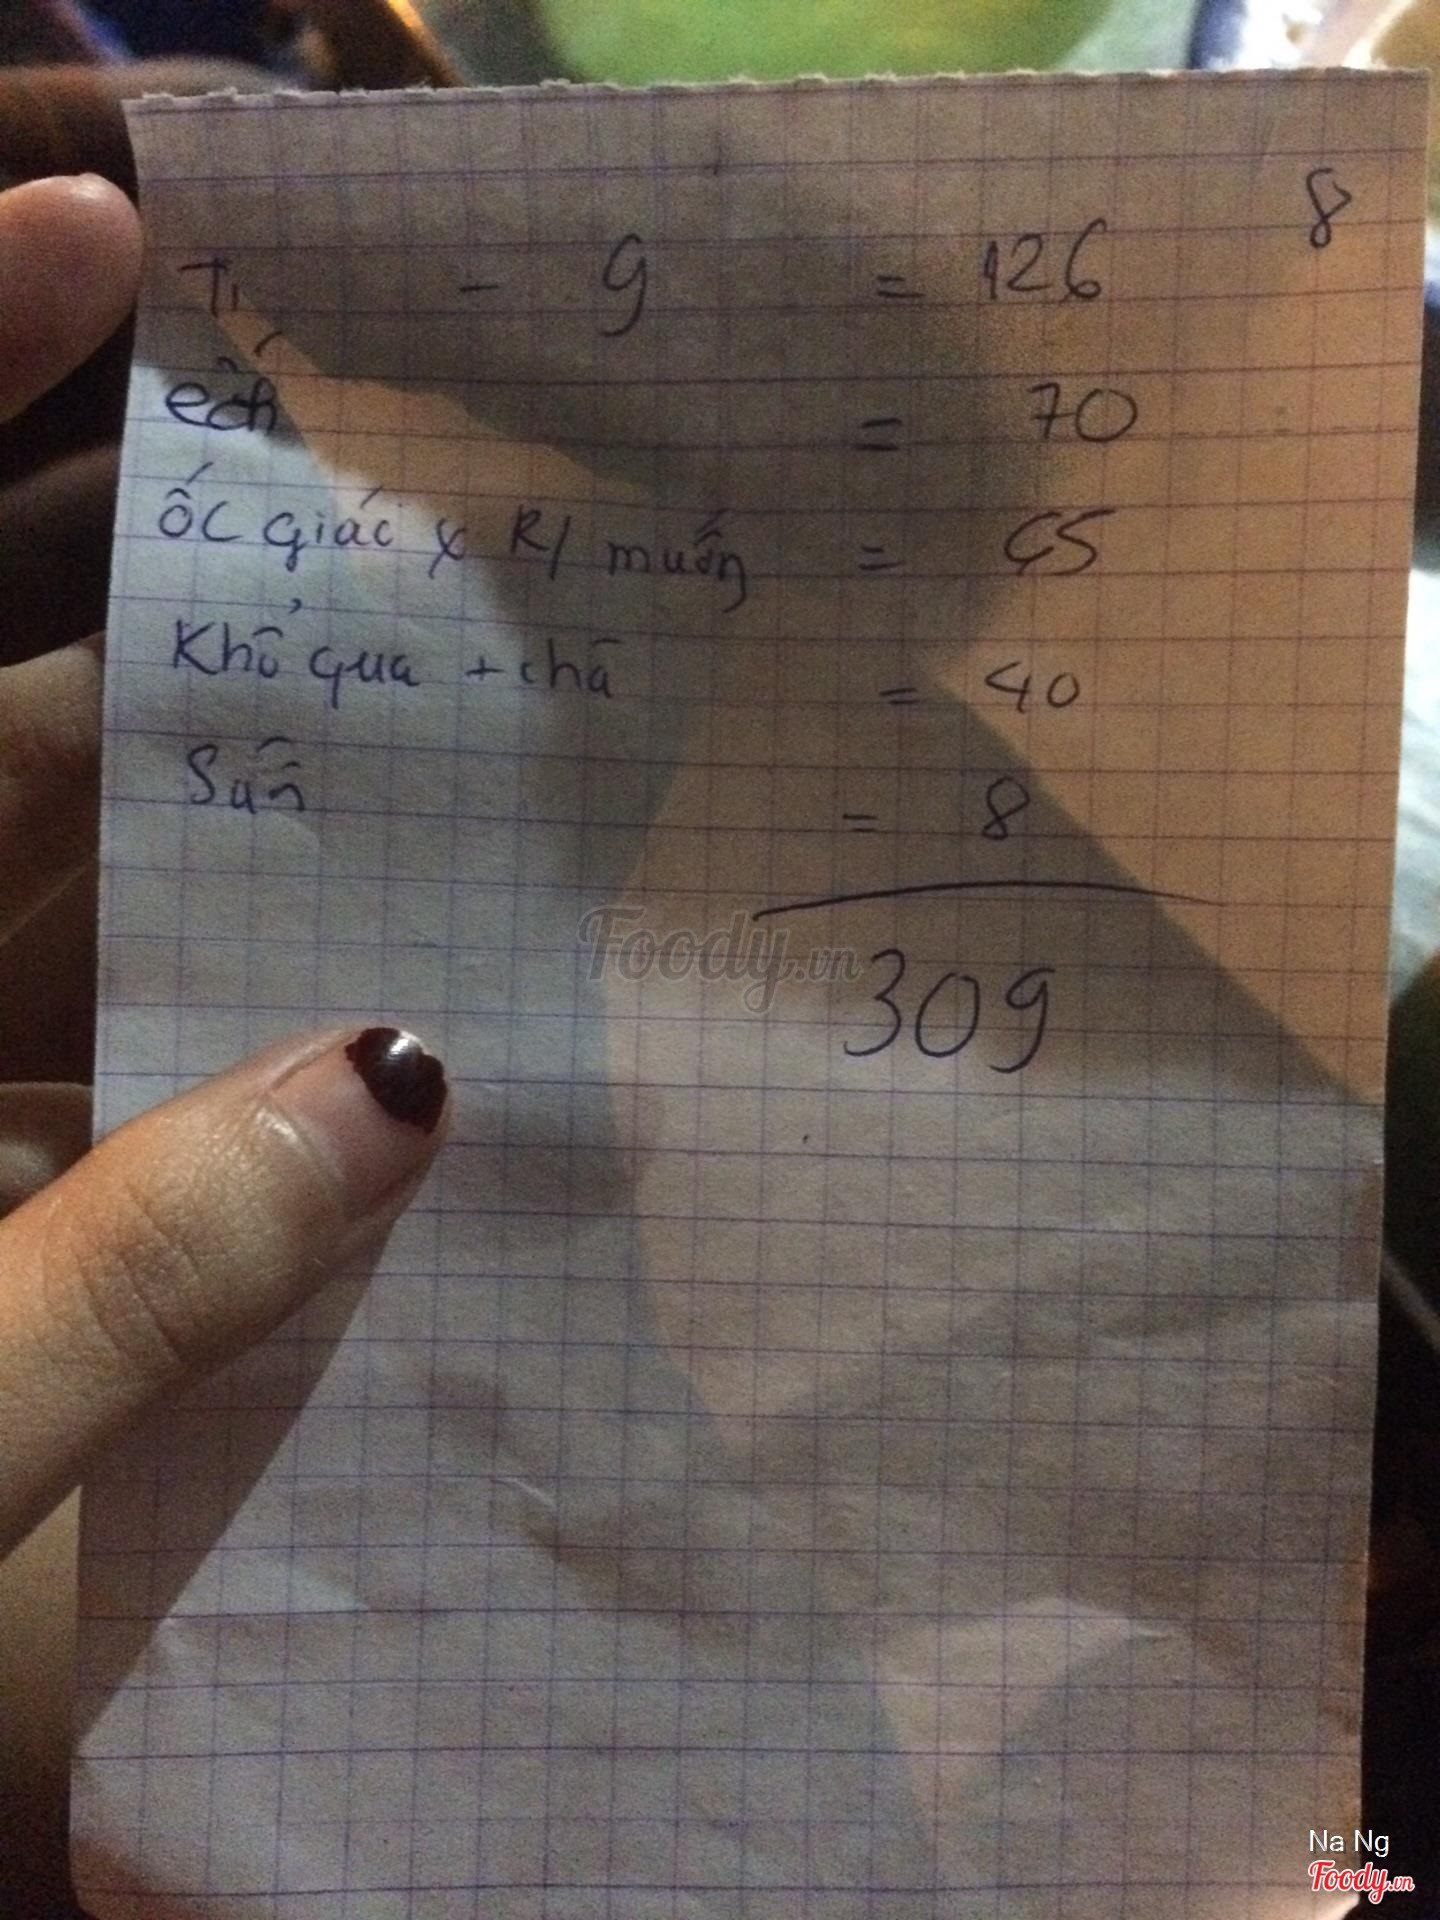 8
Ti - 9 = 126
ếch = 70
ốc giác x R/ muốn = 65
Khổ qua + chà = 40
Suấn = 8
Foody.vn
309
Na Ng
Foody.vn